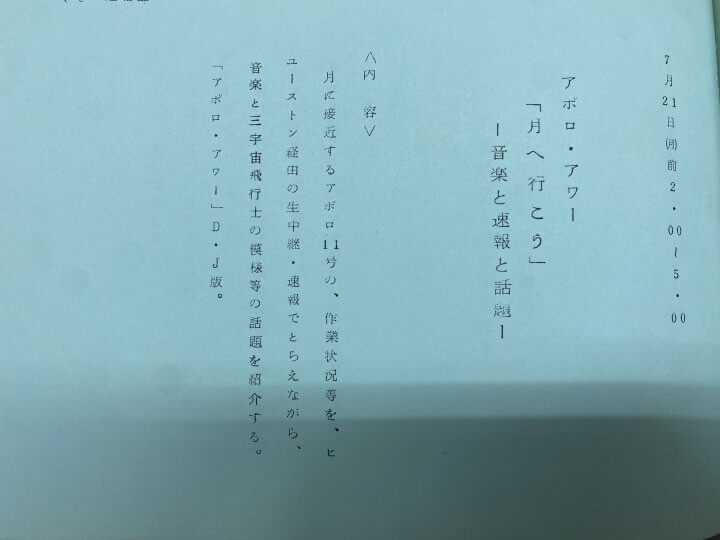 7月21日㈪前2・00〜5・00
アポロ・アワー
「月へ行こう」
ー音楽と速報と話題ー
〈内 容〉
月に接近するアポロ11号の、作業状況等を、ヒ
ューストン経由の生中継・速報でとらえながら、
音楽と三宇宙飛行士の模様等の話題を紹介する。
「アポロ・アワー」D・J版。